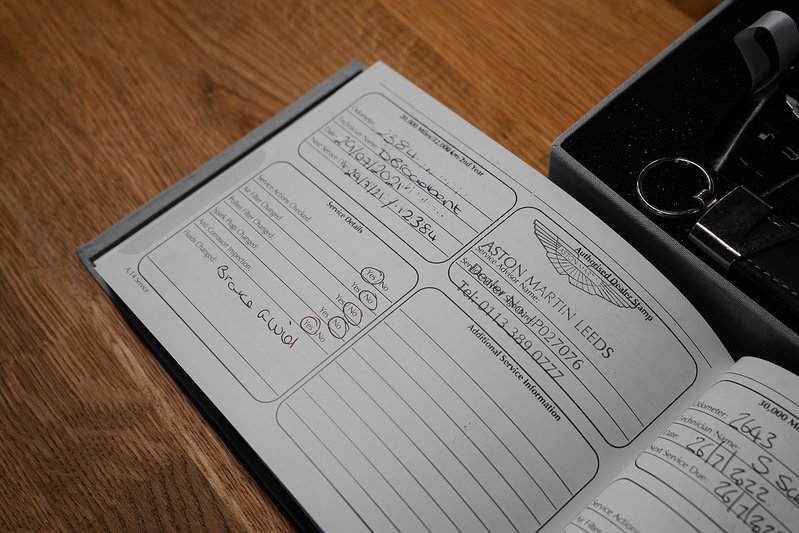 20,000 Miles/32,000km 2nd Year
Odometer: 2384
Technician Name: D Broadbent
Date: 29/07/2021
Next Service 29/7/21 / 12384
Service Details
Service Actions Checked: Yes No
Air Filter Changed: Yes No
Pollen Filter Changed: Yes No
Spark Plugs Changed: Yes No
Anti Corrosion Inspection: Yes No
Fluids Changed:
Brake
A14 Service
Authorised Dealer Stamp
ASTON MARTIN LEEDS
Service Advisor Name:
Dealer No: IP027076
Tel: 0113 389 0777
Additional Service Information
30,000
Odometer: 2643
Technician Name: S
Date: 26/7/2022
Next Service Due: 26/7/
Service Actions
Air Filter